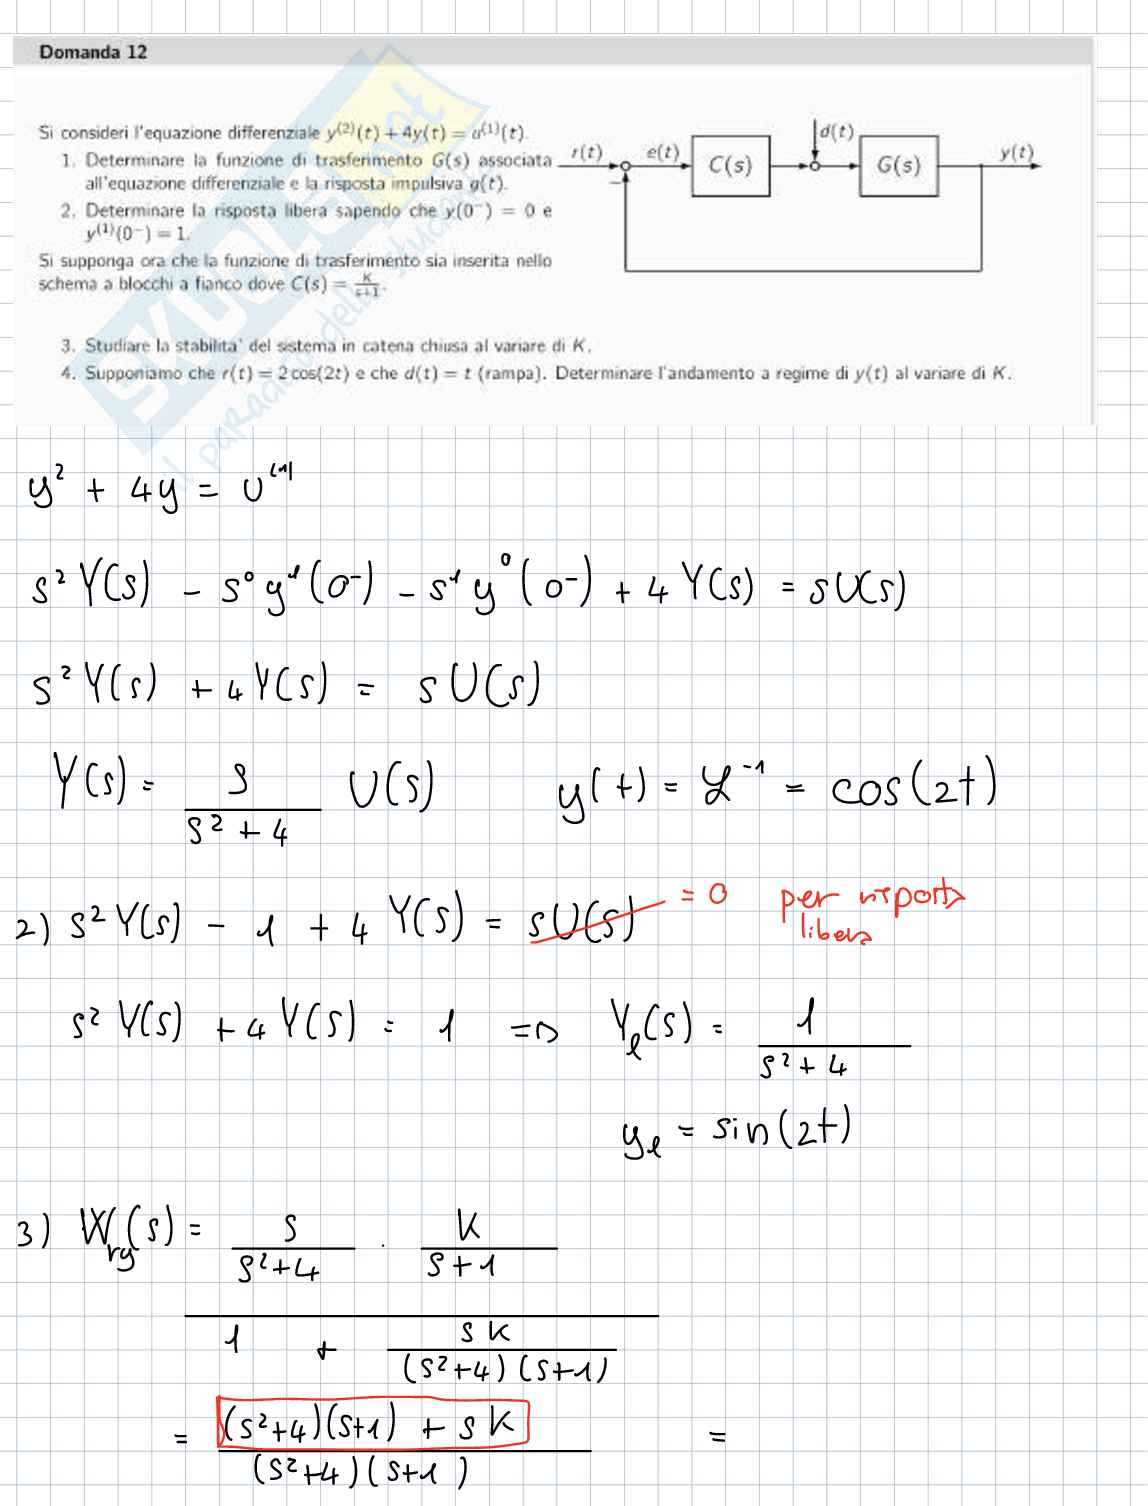 Domanda 12
Si consideri l'equazione differenziale y⁽²⁾(t) + 4y(t) = u⁽¹⁾(t).
1. Determinare la funzione di trasferimento G(s) associata
all'equazione differenziale e la risposta impulsiva g(t).
2. Determinare la risposta libera sapendo che y(0⁻) = 0 e
y⁽¹⁾(0⁻) = 1.
Si supponga ora che la funzione di trasferimento sia inserita nello
schema a blocchi a fianco dove C(s) = K/(s+1).
r(t) e(t) C(s) d(t) G(s) y(t)
−
3. Studiare la stabilita' del sistema in catena chiusa al variare di K.
4. Supponiamo che r(t) = 2 cos(2t) e che d(t) = t (rampa). Determinare l'andamento a regime di y(t) al variare di K.
SKUOLA.net
il paradiso dello studente
y² + 4y = U⁽¹⁾
s² Y(s) - s⁰ y¹(0⁻) - s¹ y⁰(0⁻) + 4 Y(s) = sU(s)
s² Y(s) + 4Y(s) = sU(s)
Y(s) = s/(s² + 4) U(s) y(t) = ℒ⁻¹ = cos(2t)
2) s² Y(s) - 1 + 4 Y(s) = sU(s) = 0 per risposta
libera
s² Y(s) + 4Y(s) = 1 => Yₗ(s) = 1/(s² + 4)
yₗ = sin(2t)
3) W_ry(s) = s/(s²+4) · K/(s+1)
1 + sK/((s²+4)(s+1))
= ((s²+4)(s+1) + sK)/((s²+4)(s+1)) =